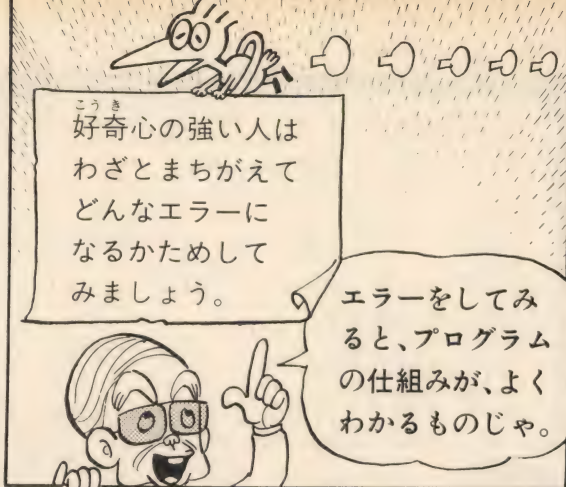 こうき
好奇心の強い人は
わざとまちがえて
どんなエラーに
なるかためして
みましょう。
エラーをしてみ
ると、プログラム
の仕組みが、よく
わかるものじゃ。